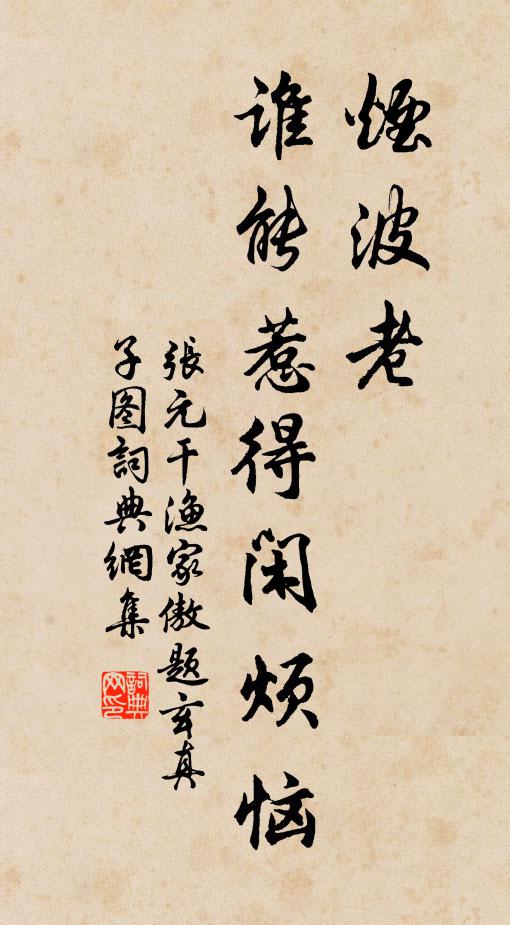 煙波老
谁能惹得闲烦恼
張元干渔家傲题玄真
子图詞典網集
詞典
网印